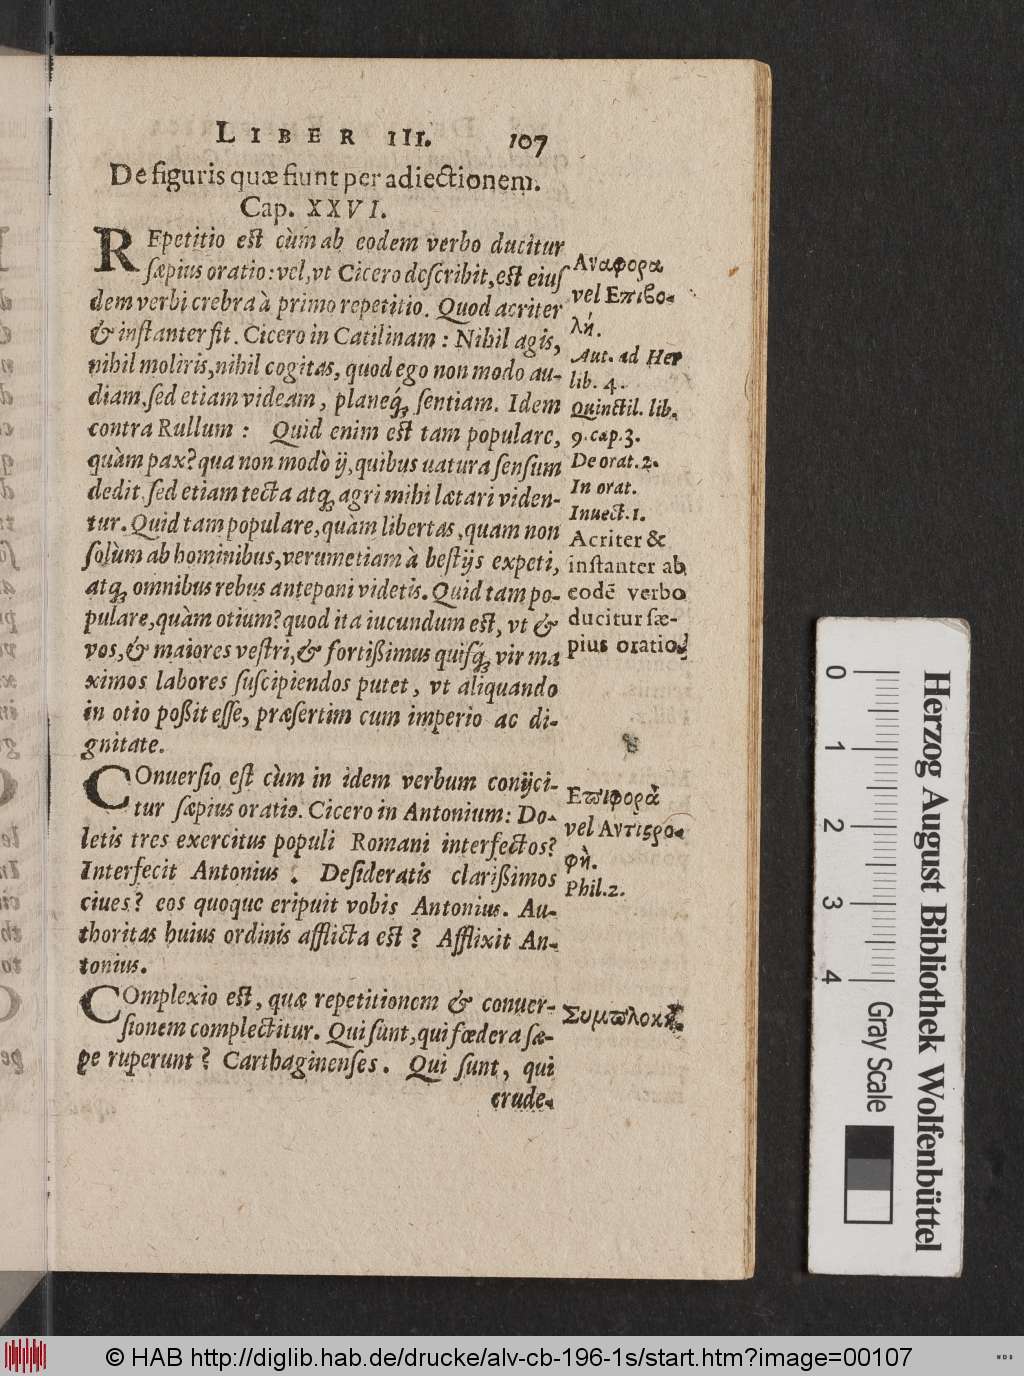 LIBER III. 107
De figuris quæ fiunt per adiectionem.
Cap. XXVI.
REpetitio est cùm ab eodem verbo ducitur
sæpius oratio: vel, vt Cicero describit, est eius
dem verbi crebra à primo repetitio. Quod acriter
& instanter fit. Cicero in Catilinam: Nihil agis,
nihil moliris, nihil cogitas, quod ego non modo au-
diam, sed etiam videam, planeq́; sentiam. Idem
contra Rullum: Quid enim est tam populare,
quàm pax? qua non modò ij, quibus uatura sensum
dedit, sed etiam tecta atq; agri mihi lætari viden-
tur. Quid tam populare, quàm libertas, quam non
solùm ab hominibus, verumetiam à bestijs expeti,
atq; omnibus rebus anteponi videtis. Quid tam po-
pulare, quàm otium? quod ita iucundum est, vt &
vos, & maiores vestri, & fortißimus quisq́; vir ma
ximos labores suscipiendos putet, vt aliquando
in otio poßit esse, præsertim cum imperio ac di-
gnitate.
COnuersio est cùm in idem verbum conijci-
tur sæpius oratio. Cicero in Antonium: Do-
letis tres exercitus populi Romani interfectos?
Interfecit Antonius. Desideratis clarißimos
ciues? eos quoque eripuit vobis Antonius. Au-
thoritas huius ordinis afflicta est? Afflixit An-
tonius.
COmplexio est, quæ repetitionem & conuer-
sionem complectitur. Qui sunt, qui fœdera sæ-
pe ruperunt? Carthaginenses. Qui sunt, qui
crude-
Αναφορα
vel Επιβο-
λή.
Aut. ad Her
lib. 4.
Quinctil. lib.
9. cap. 3.
De orat. 2.
In orat.
Inuect. 1.
Acriter &
instanter ab
eodē verbo
ducitur sæ-
pius oratio.
Επιφορὰ
vel Αντιςρο-
φὴ.
Phil. 2.
Συμπλοκὴ.
0 1 2 3 4
Gray Scale
Herzog August Bibliothek Wolfenbüttel
© HAB http://diglib.hab.de/drucke/alv-cb-196-1s/start.htm?image=00107